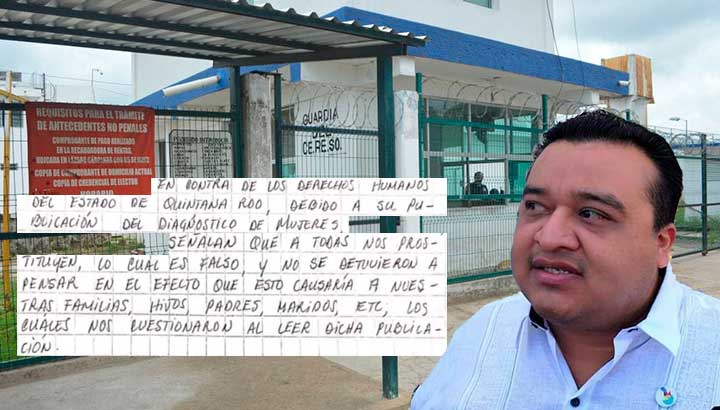 REQUISITOS PARA EL TRÁMITE
DE ANTECEDENTES NO PENALES
COMPROBANTE DE PAGO REALIZADO
EN LA RECAUDADORA DE RENTAS
COPIA DE COMPROBANTE DE DOMICILIO ACTUAL
COPIA DE CREDENCIAL DE ELECTOR
GUARDIA
DEL
CE.RE.SO.
EN CONTRA DE LOS DERECHOS HUMANOS
DEL ESTADO DE QUINTANA ROO, DEBIDO A SU PU-
BLICACIÓN DEL DIAGNÓSTICO DE MUJERES.
SEÑALAN QUE A TODAS NOS PROS-
TITUYEN, LO CUAL ES FALSO, Y NO SE DETUVIERON A
PENSAR EN EL EFECTO QUE ESTO CAUSARÍA A NUES-
TRAS FAMILIAS, HIJOS, PADRES, MARIDOS, ETC; LOS
CUALES NOS CUESTIONARON AL LEER DICHA PUBLICA-
CIÓN.